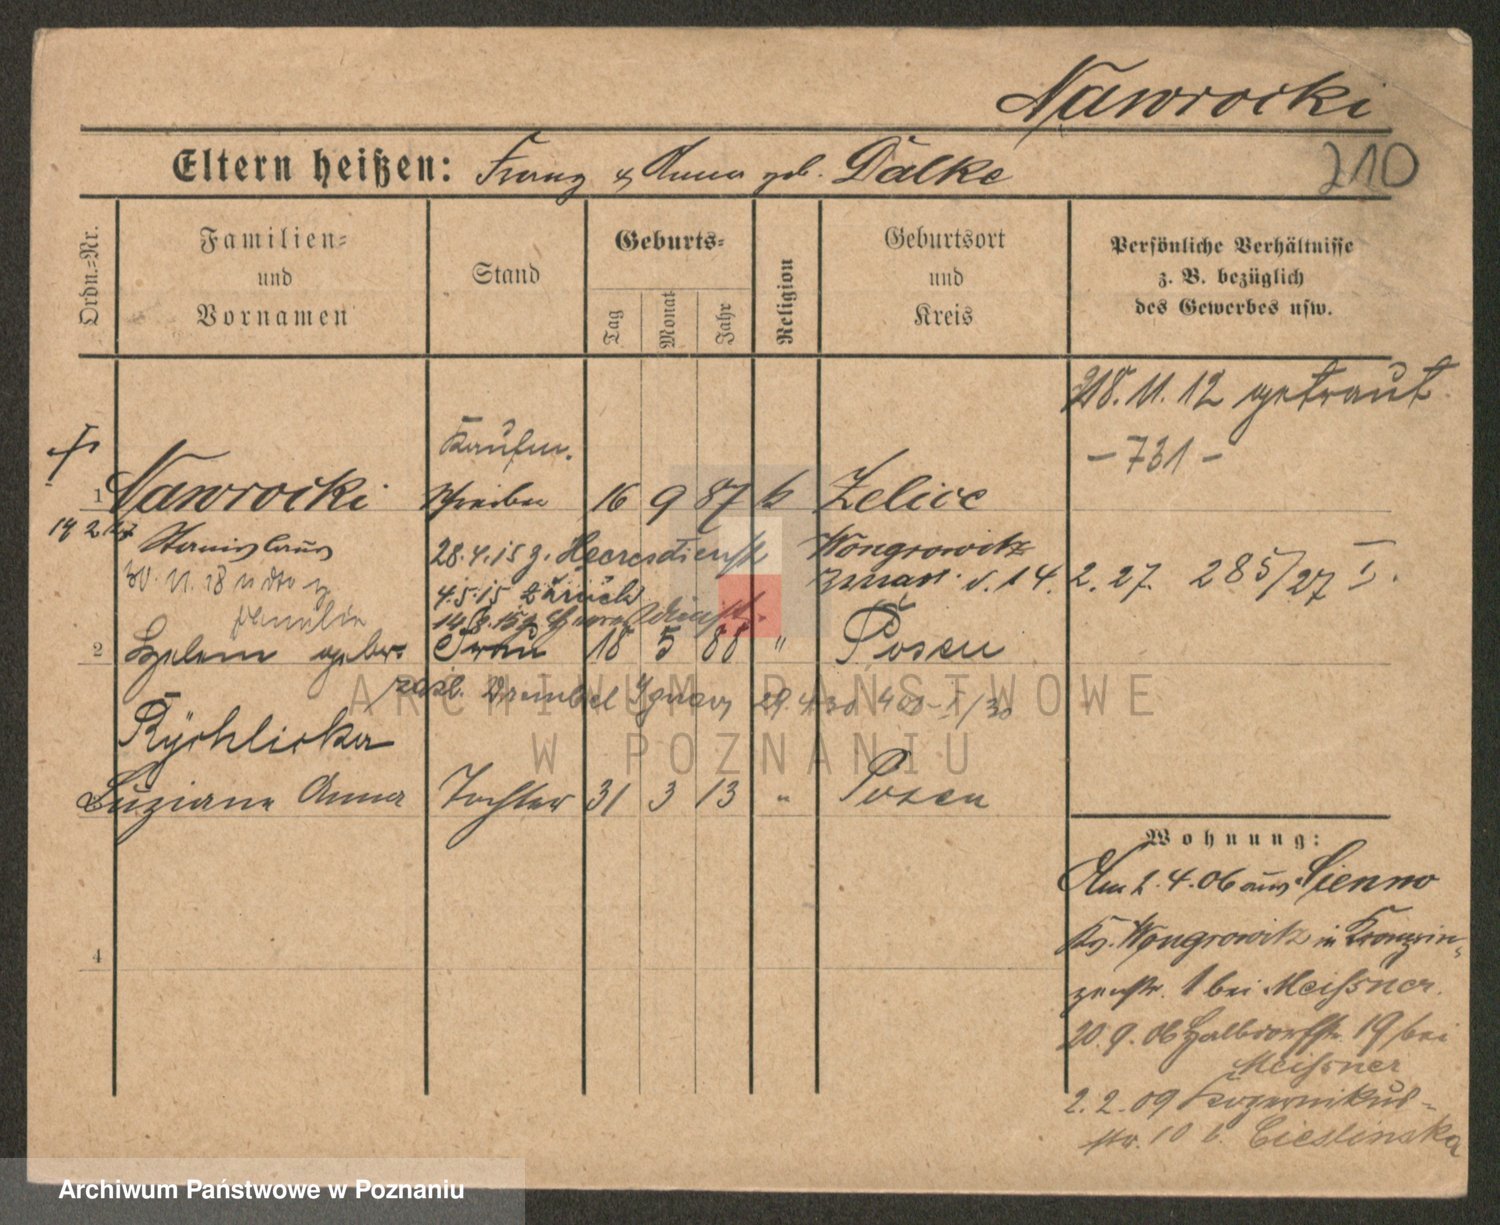 Nawrocki
Eltern heißen: Franz & Anna geb. Dälke
210
Ordn.=Nr.
Familien=
und
Vornamen
Stand
Geburts=
Tag
Monat
Jahr
Religion
Geburtsort
und
Kreis
Persönliche Verhältnisse
z. B. bezüglich
des Gewerbes usw.
18.11.12 getraut.
– 731 –
Kaufm.
1 Nawrocki Schreiber 16 9 87 k Zelice
Stanislaus 28.4.15 z. Heeresdienst Wongrowitz
30.11.18
4.5.15 zurück zmarł. d. 14.2.27. 285/27 I.
Familie
2 Helene geb. Frau 18 5 88 " Posen
Ignacy 29.4.30
Rychlicka
Luziane Anna Tochter 31 3 13 " Posen
Wohnung:
Am 2.4.06 aus Sienno
Kr. Wongrowitz in Kronprin-
zenstr. 1 bei Meißner.
20.9.06 Halbdorfstr. 19 bei
Meißner
2.2.09 Kopernikus-
str. 10 b. Cieslinska
4
ARCHIWUM PAŃSTWOWE
W POZNANIU
Archiwum Państwowe w Poznaniu